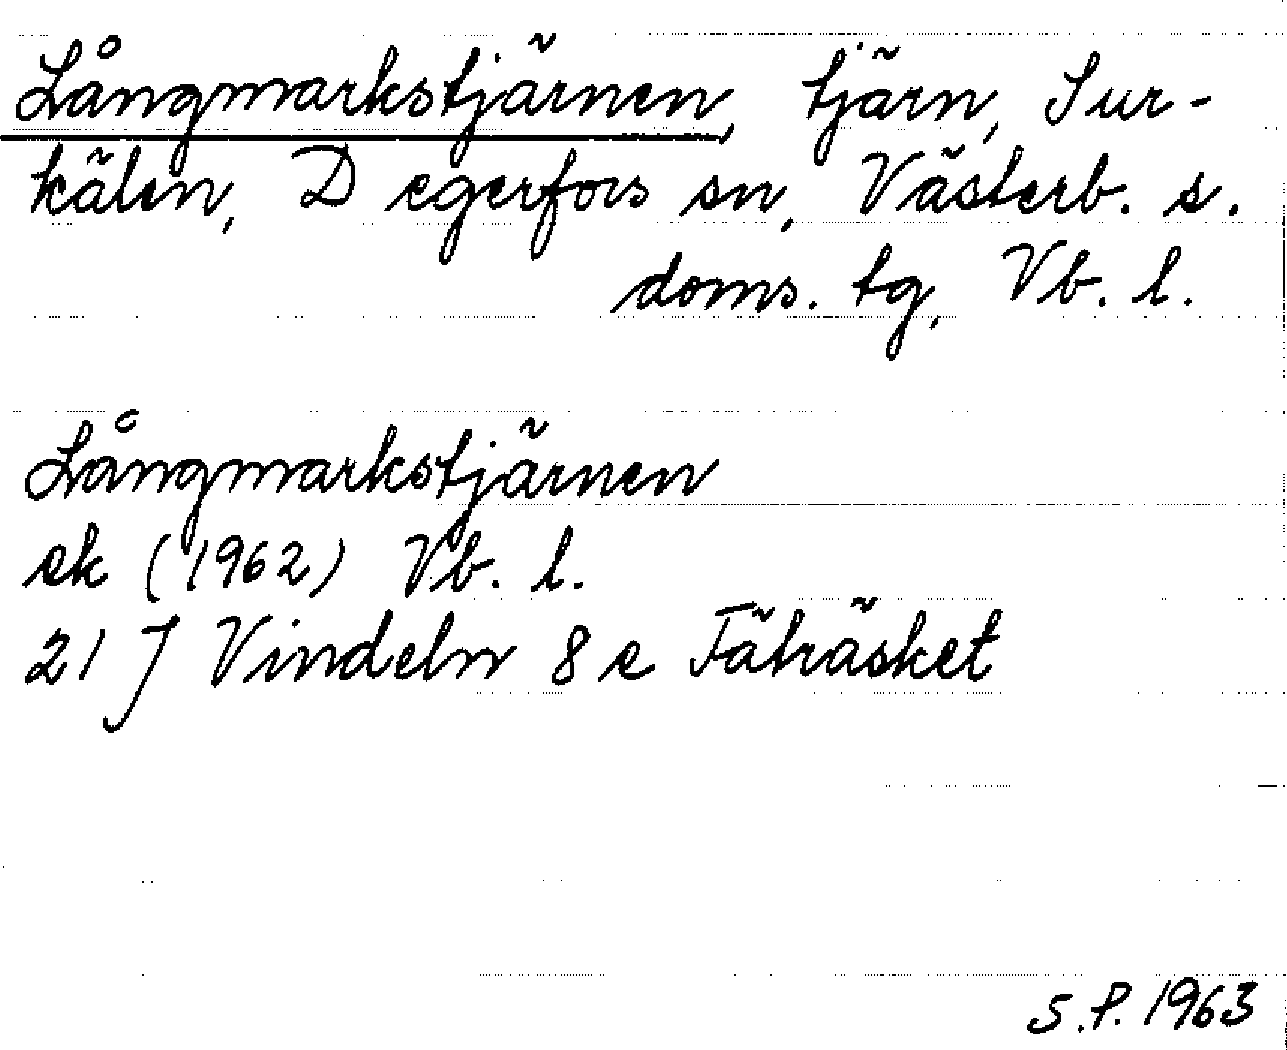 Långmarkstjärnen, tjärn, Sur-
kälen, Degerfors sn, Västerb. s.
doms. tg, Vb. l.
Långmarkstjärnen
ek (1962) Vb. l.
21 J Vindeln 8 e Fäträsket
S.P. 1963